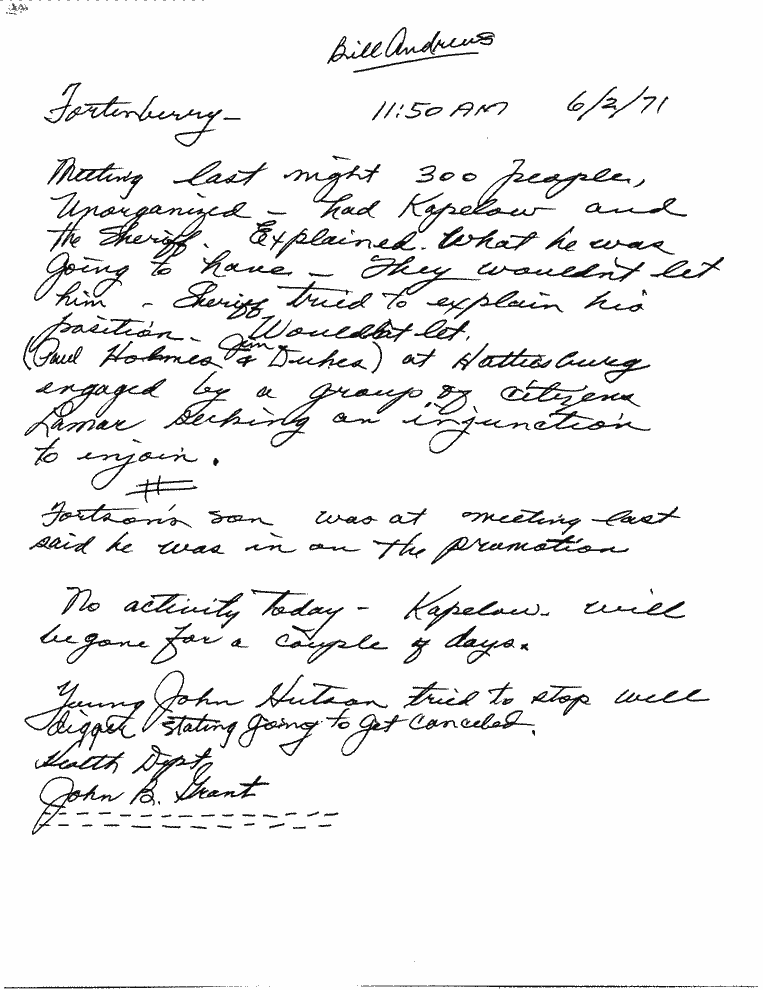 Bill Andrews
Fortenberry - 11:50 AM 6/2/71
Meeting last night 300 people,
Unorganized - had Kapelow and
the Sheriff. Explained. What he was
going to have - They wouldn't let
him - Sheriff tried to explain his
position - Wouldn't let.
(Paul Holmes & Jim Dukes) at Hattiesburg
engaged by a group of citizens
Lamar seeking an injunction
to enjoin.
#
Fortson's son was at meeting last
said he was in on the promotion
No activity today - Kapelow will
be gone for a couple of days.
Young John Hutson tried to stop well
digger stating going to get canceled.
Health Dept
John B. Grant